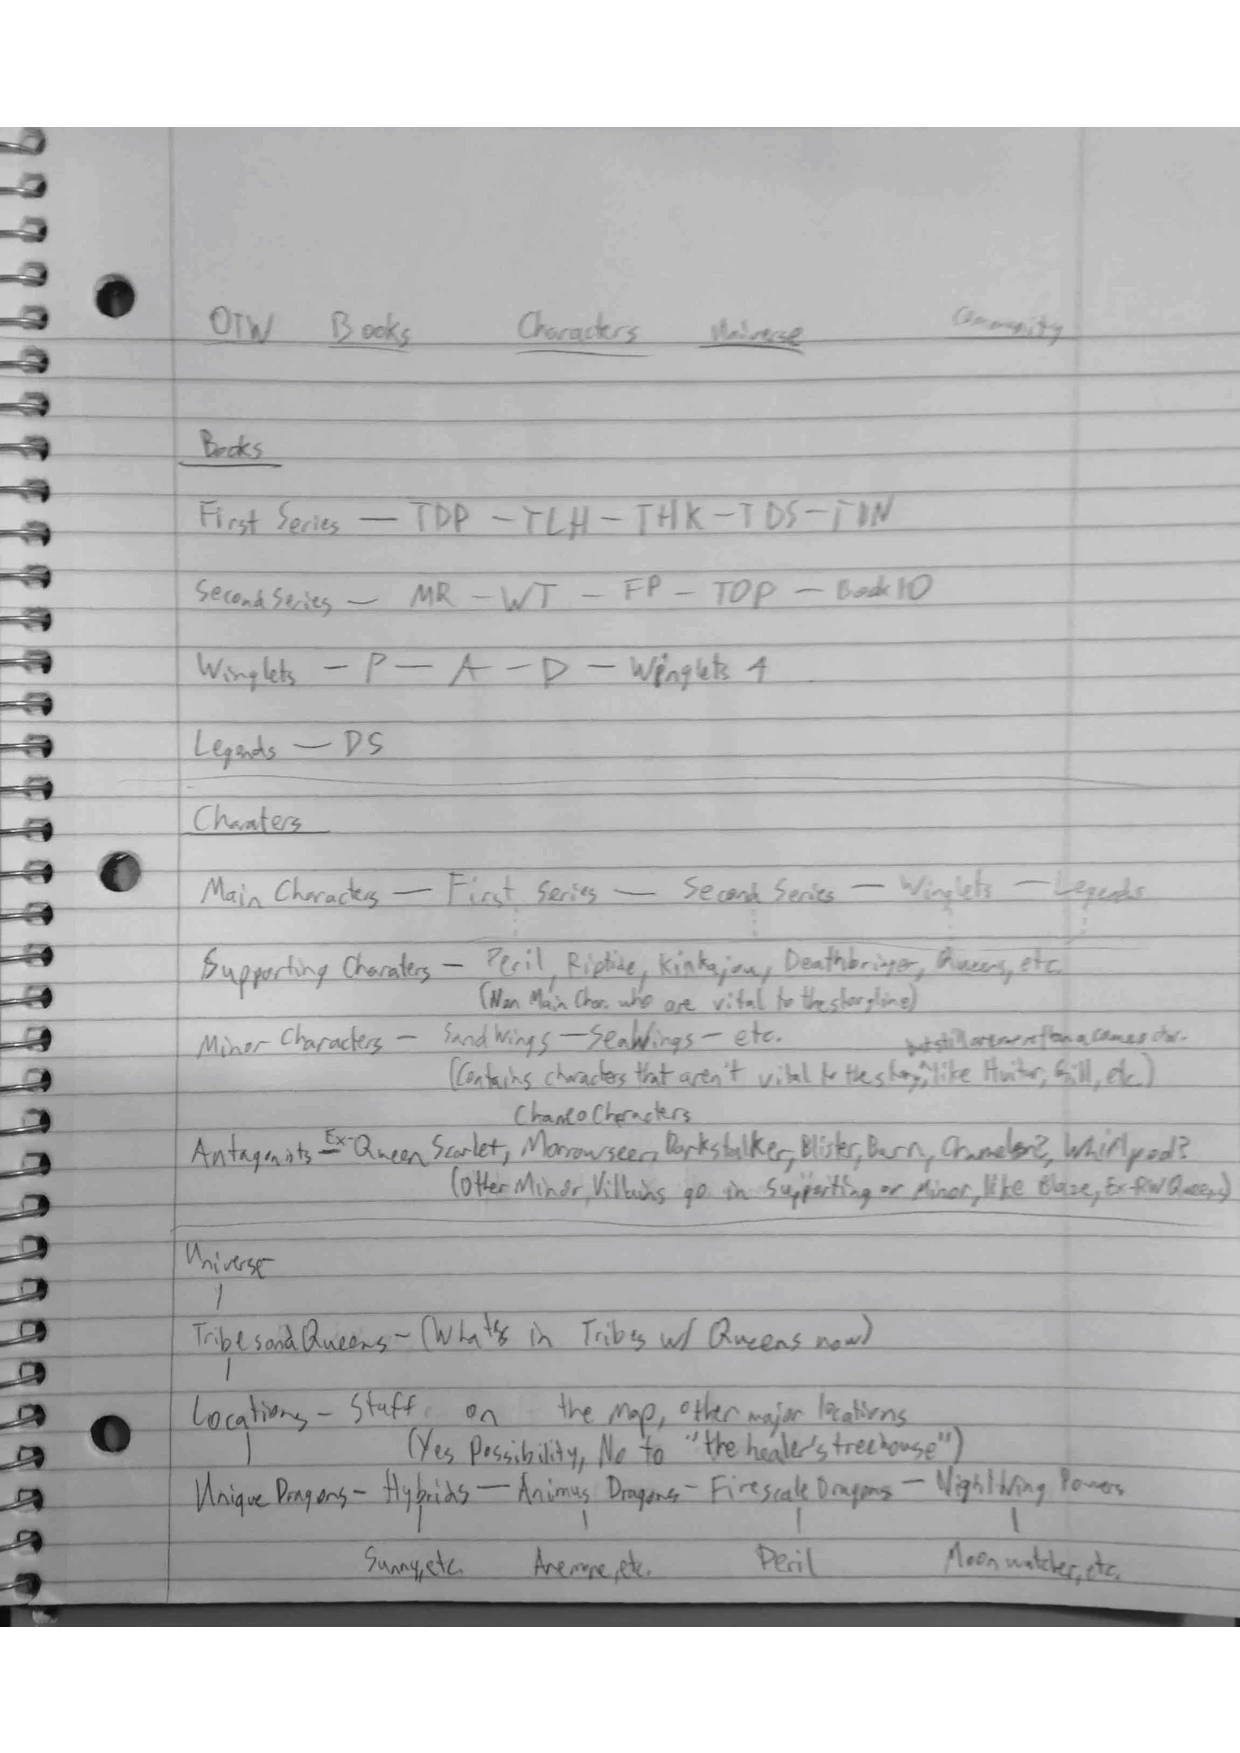 OTW Books Characters Universe Community
Books
First Series — TDP – TLH – THK – TDS – TBN
Second Series — MR – WT – FP – TOP – Book 10
Winglets – P – A – D – Winglets 4
Legends — DS
Charaters
Main Characters — First Series — Second Series — Winglets — Legends
Supporting Charaters – Peril, Riptide, Kinkajou, Deathbringer, Queens, etc.
(Non Main Char. who are vital to the storyline)
Minor Characters – SandWings – SeaWings – etc.
but still are more than a cameo char.
(Contains characters that aren't vital to the story, like Hvitur, Gill, etc.)
Cameo Characters
Antagonists – Ex-Queen Scarlet, Morrowseer, Darkstalker, Blister, Burn, Chameleon?, Whirlpool?
(Other Minor Villains go in Supporting or Minor, like Blaze, Ex-RW Queens)
Universe
Tribes and Queens – (What's in Tribes w/ Queens now)
Locations – Stuff on the map, other major locations
(Yes Possibility, No to "the healer's treehouse")
Unique Dragons – Hybrids — Animus Dragons – Firescale Dragons – NightWing Powers
Sunny, etc. Anemone, etc. Peril Moonwatcher, etc.